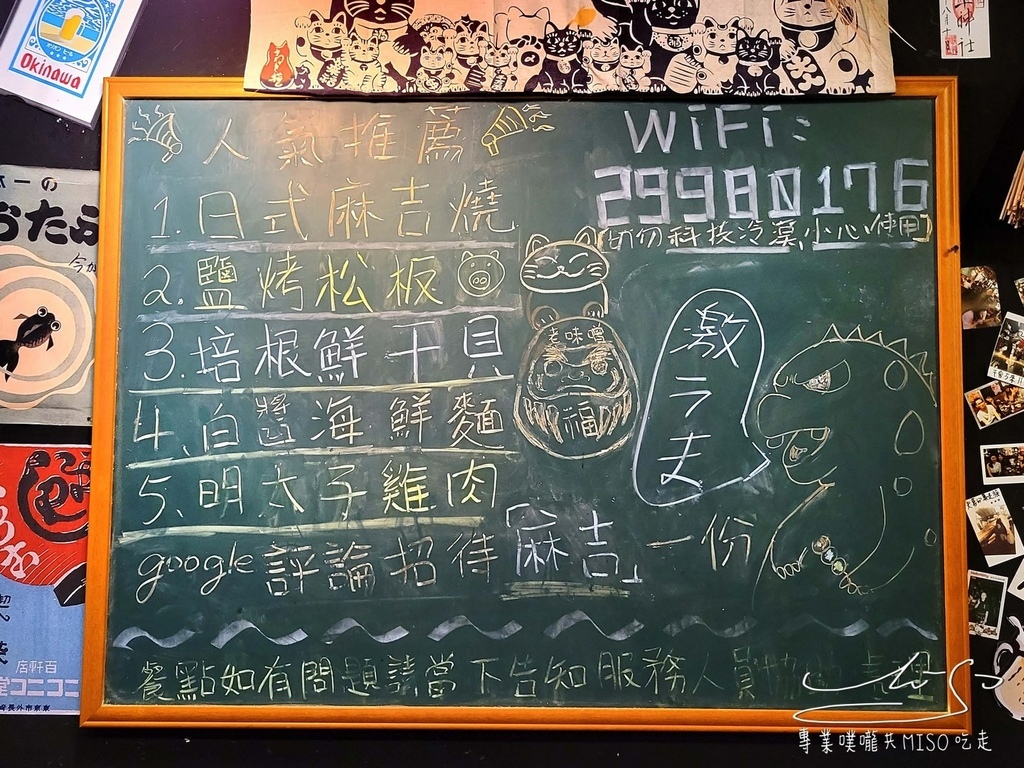 Okinawa
人氣推薦
1.日式麻吉燒
2.鹽烤松板
3.培根鮮干貝
4.白醬海鮮麵
5.明太子雞肉
google評論招待「麻吉」一份
WiFi:
29980176
(切勿科技冷漠,小心使用)
老味噌
福
激ラ夫
餐點如有問題請當下告知服務人員協助處理
おたふ
今が
店軒百
コニコニ
専業噗嚨共MISO吃走